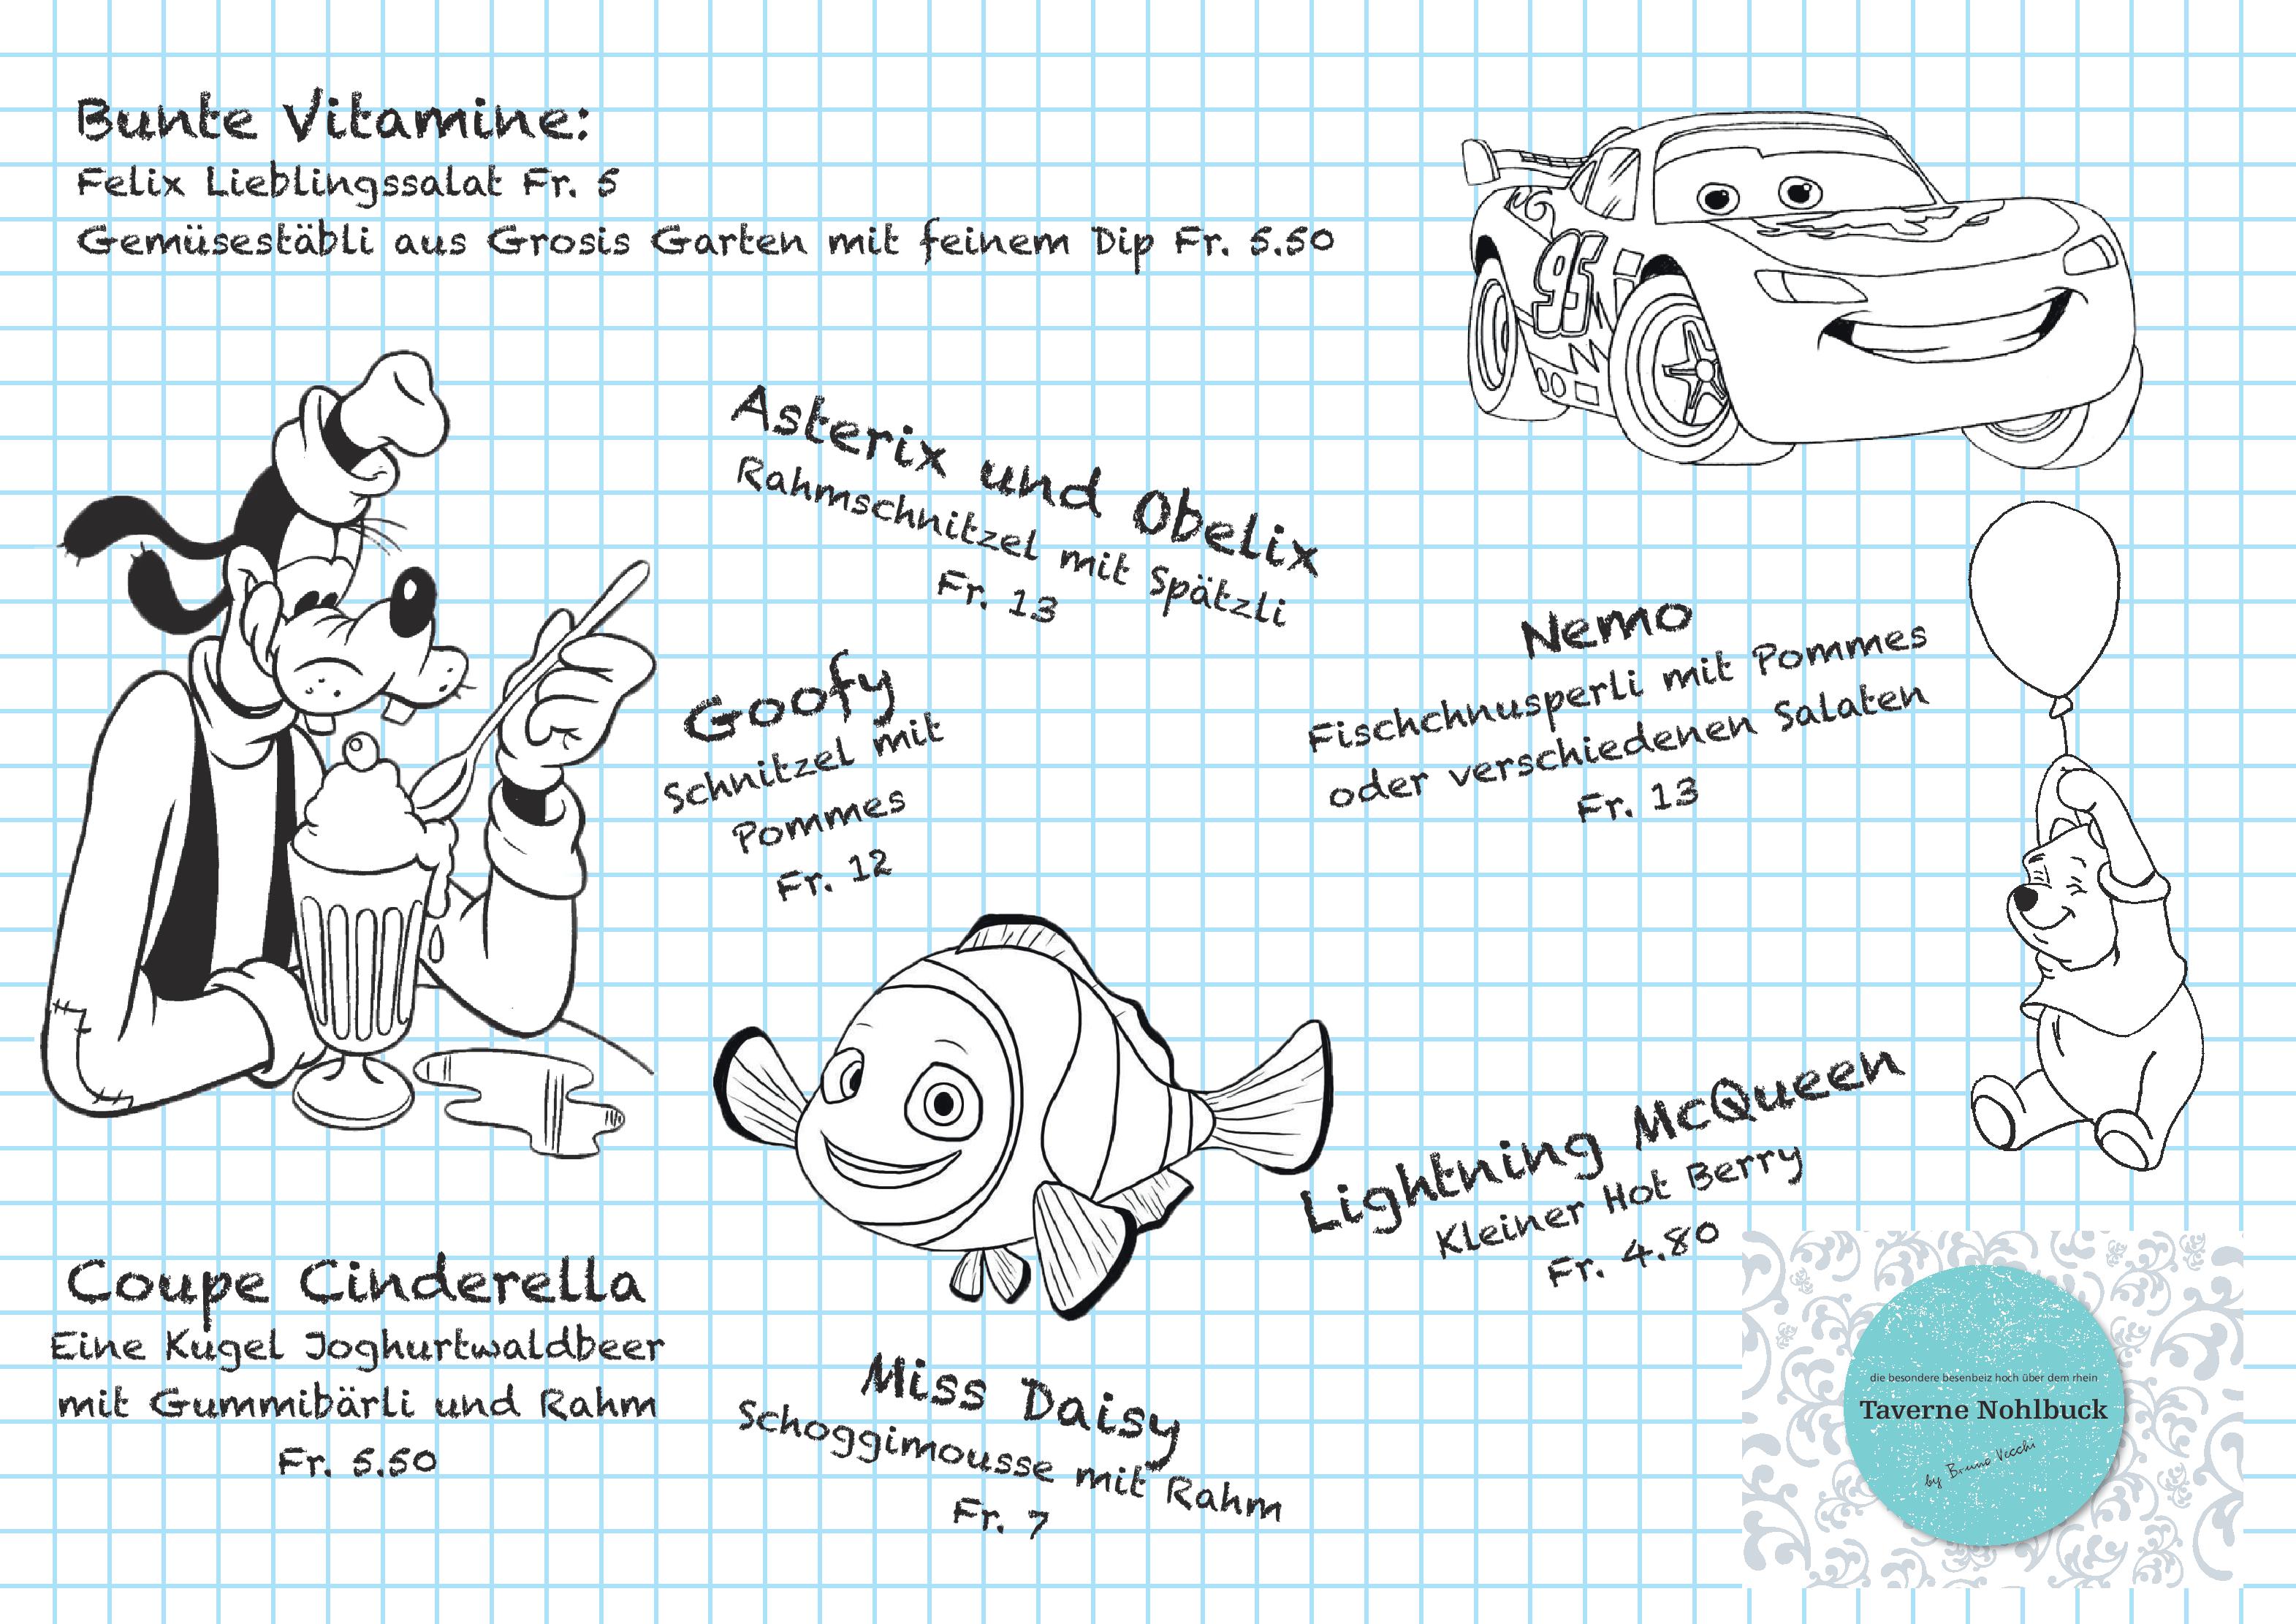 Bunte Vitamine:
Felix Lieblingssalat Fr. 5
Gemüsestäbli aus Grosis Garten mit feinem Dip Fr. 5.50
95
Asterix und Obelix
Rahmschnitzel mit Spätzli
Fr. 13
Goofy
Schnitzel mit
Pommes
Fr. 12
Nemo
Fischchnusperli mit Pommes
oder verschiedenen Salaten
Fr. 13
Lightning McQueen
Kleiner Hot Berry
Fr. 4.80
Coupe Cinderella
Eine Kugel Joghurtwaldbeer
mit Gummibärli und Rahm
Fr. 5.50
Miss Daisy
Schoggimousse mit Rahm
Fr. 7
die besondere besenbeiz hoch über dem rhein
Taverne Nohlbuck
by Bruno Vecchi